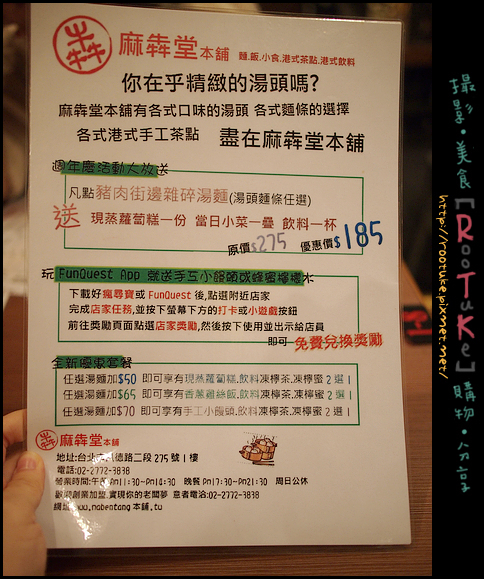 犇
麻犇堂本舖 麵.飯.小食.港式茶點.港式飲料
你在乎精緻的湯頭嗎?
麻犇堂本舖有各式口味的湯頭 各式麵條的選擇
各式港式手工茶點 盡在麻犇堂本舖
週年慶活動大放送
凡點豬肉街邊雜碎湯麵(湯頭麵條任選)
送 現蒸蘿蔔糕一份 當日小菜一疊 飲料一杯
原價$275 優惠價$185
玩 FunQuest App 就送手工小饅頭或蜂蜜檸檬冰
下載好瘋尋寶或 FunQuest 後,點選附近店家
完成店家任務,並按下螢幕下方的打卡或小遊戲按鈕
前往獎勵頁面點選店家獎勵,然後按下使用並出示給店員
即可 免費兌換獎勵
全新優惠套餐
任選湯麵加$50 即可享有現蒸蘿蔔糕.飲料凍檸茶.凍檸蜜 2 選 1
任選湯麵加$65 即可享有香蔥雞絲飯.飲料凍檸茶.凍檸蜜 2 選 1
任選湯麵加$70 即可享有手工小饅頭.飲料凍檸茶.凍檸蜜 2 選 1
麻犇堂本舖
地址:台北 德路二段 275 號 1 樓
電話:02-2772-3838
營業時間:午 11:30~Pm14:30 晚餐 Pm17:30~Pm21:30 周日公休
歡迎創業加盟,實現你的老闆夢 意者電洽:02-2772-3838
網址 www.mabentang 本舖.tw
攝影・美食【RooTuKE】購物・分享
http://rootuke.pixnet.net/